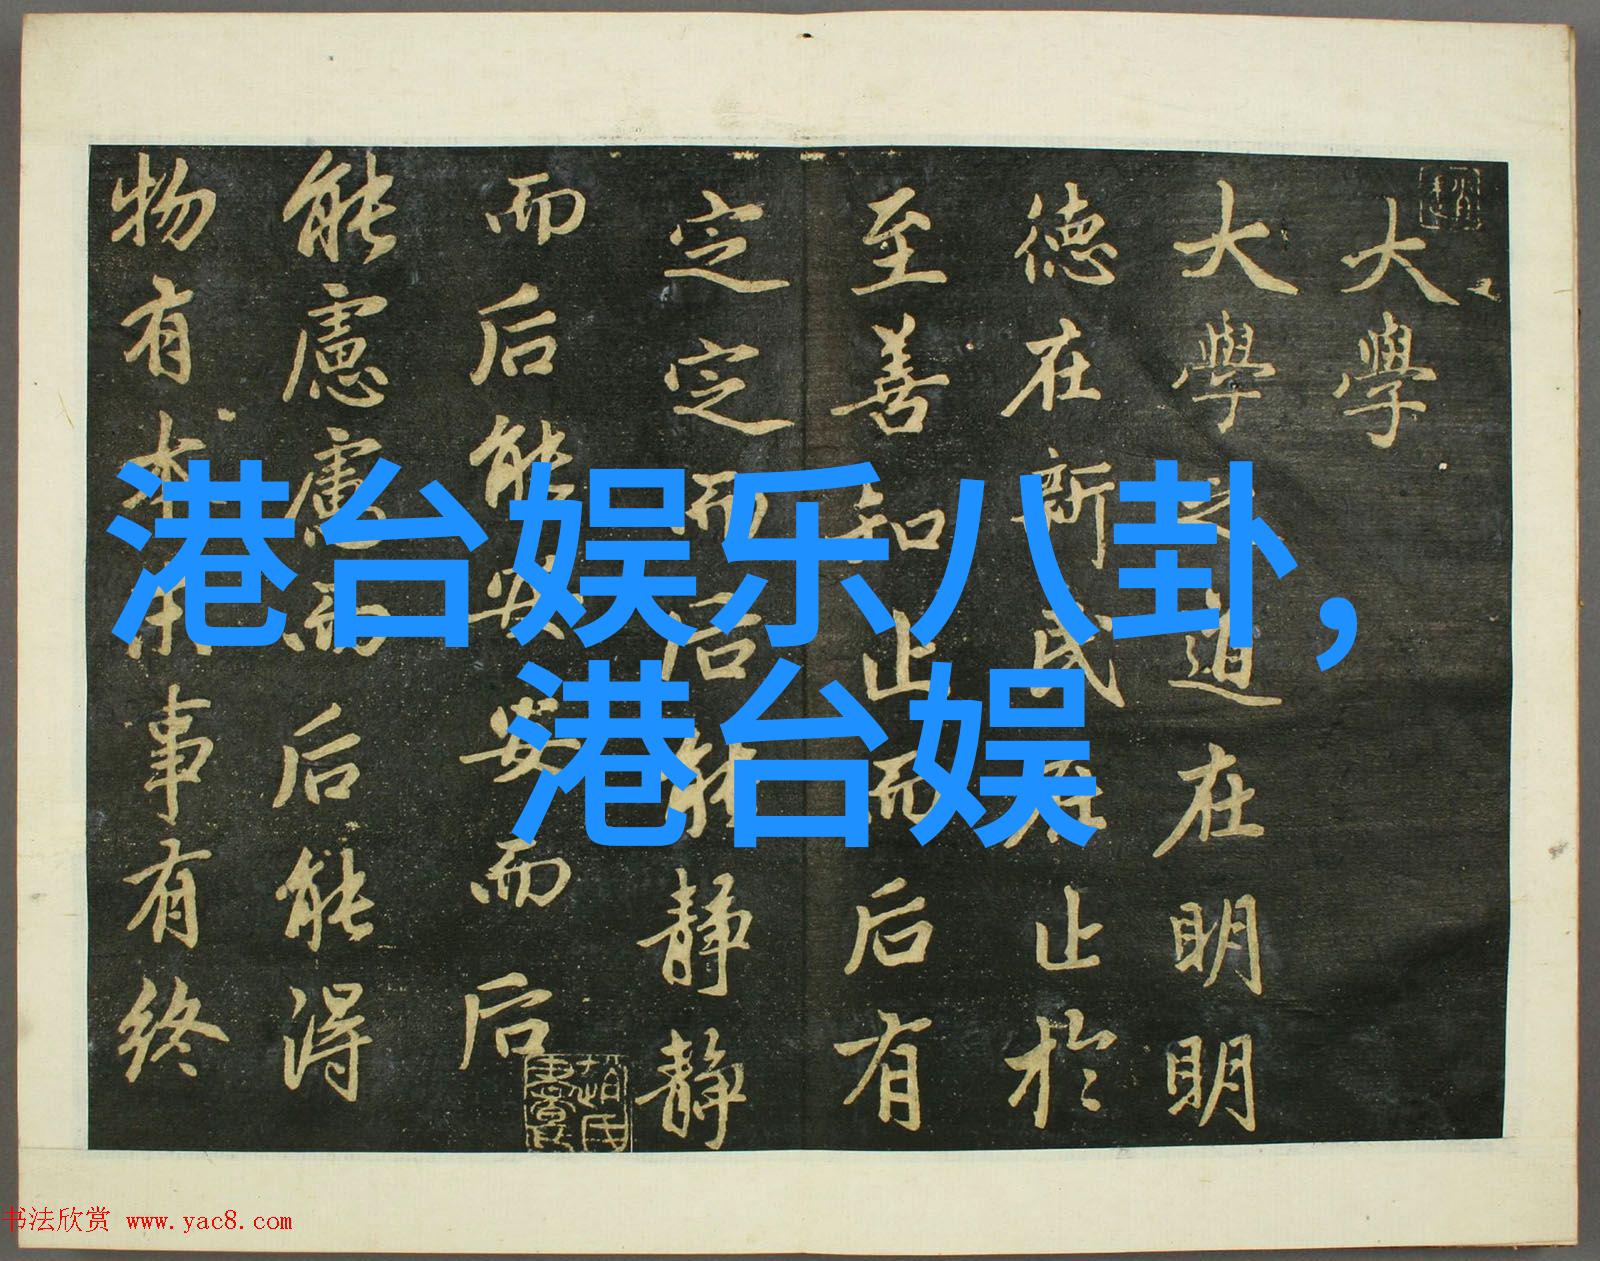 大學
大學之道在明明
德在新民在止於
至善知止而后有
定定而后能静静
而后能安安而后
能慮慮而后能得
物有本末事有終
港台娱乐八卦，
港台娱
书法欣赏 www.yac8.com